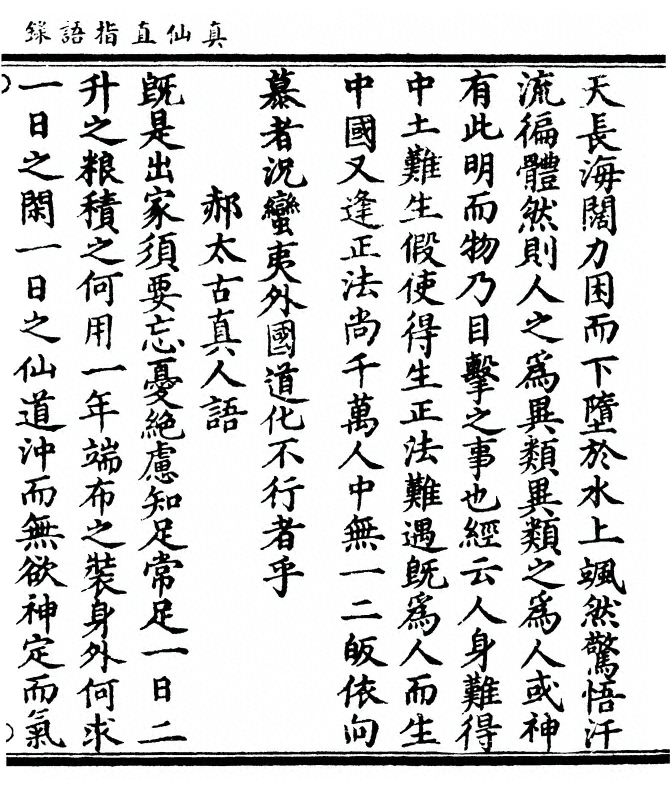 真仙直指語錄
天長海闊力困而下墮於水上颯然驚悟汗
流徧體然則人之爲異類異類之爲人或神
有此明而物乃目擊之事也經云人身難得
中土難生假使得生正法難遇旣爲人而生
中國又逢正法尚千萬人中無一二皈依向
慕者況蠻夷外國道化不行者乎
郝太古真人語
旣是出家須要忘憂絶慮知足常足一日二
升之粮積之何用一年端布之裝身外何求
一日之閑一日之仙道沖而無欲神定而氣